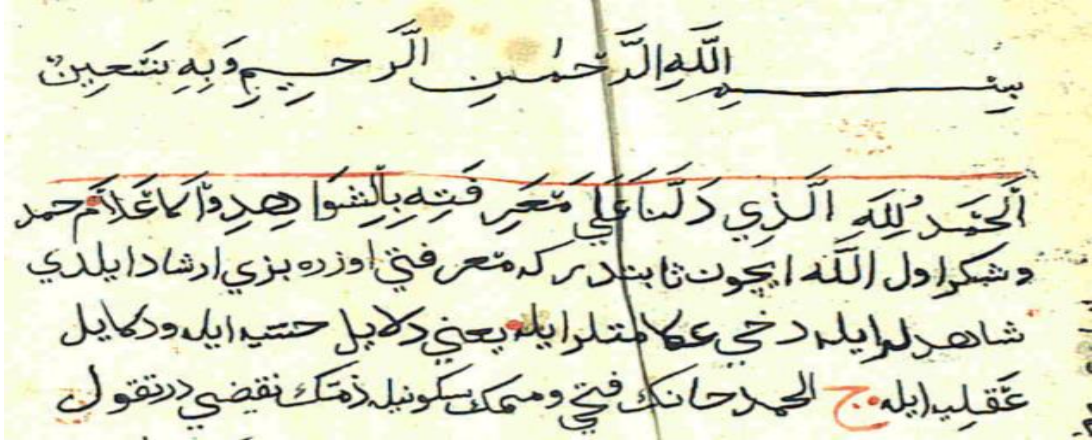 بِسْمِ اللَّهِ الرَّحْمٰنِ الرَّحِيمِ وَبِهِ نَسْتَعِينُ
اَلْحَمْدُ لِلَّهِ الَّذِي دَلَّنَا عَلَي مَعْرِفَتِهِ بِالشَّوَاهِدِ وَالْاَعْلَامِ حمد
و شكر اول اللَّه ايچون ثابتدر كه معرفتي اوزره بزي ارشاد ايلدي
شاهدلر ايله دخي علامتلر ايله يعني دلايل حسّيه ايله ودلايل
عَقليه ايله ج الحمد حانك فتحي وميمك سكونيله ذمّك نقيضي در تقول